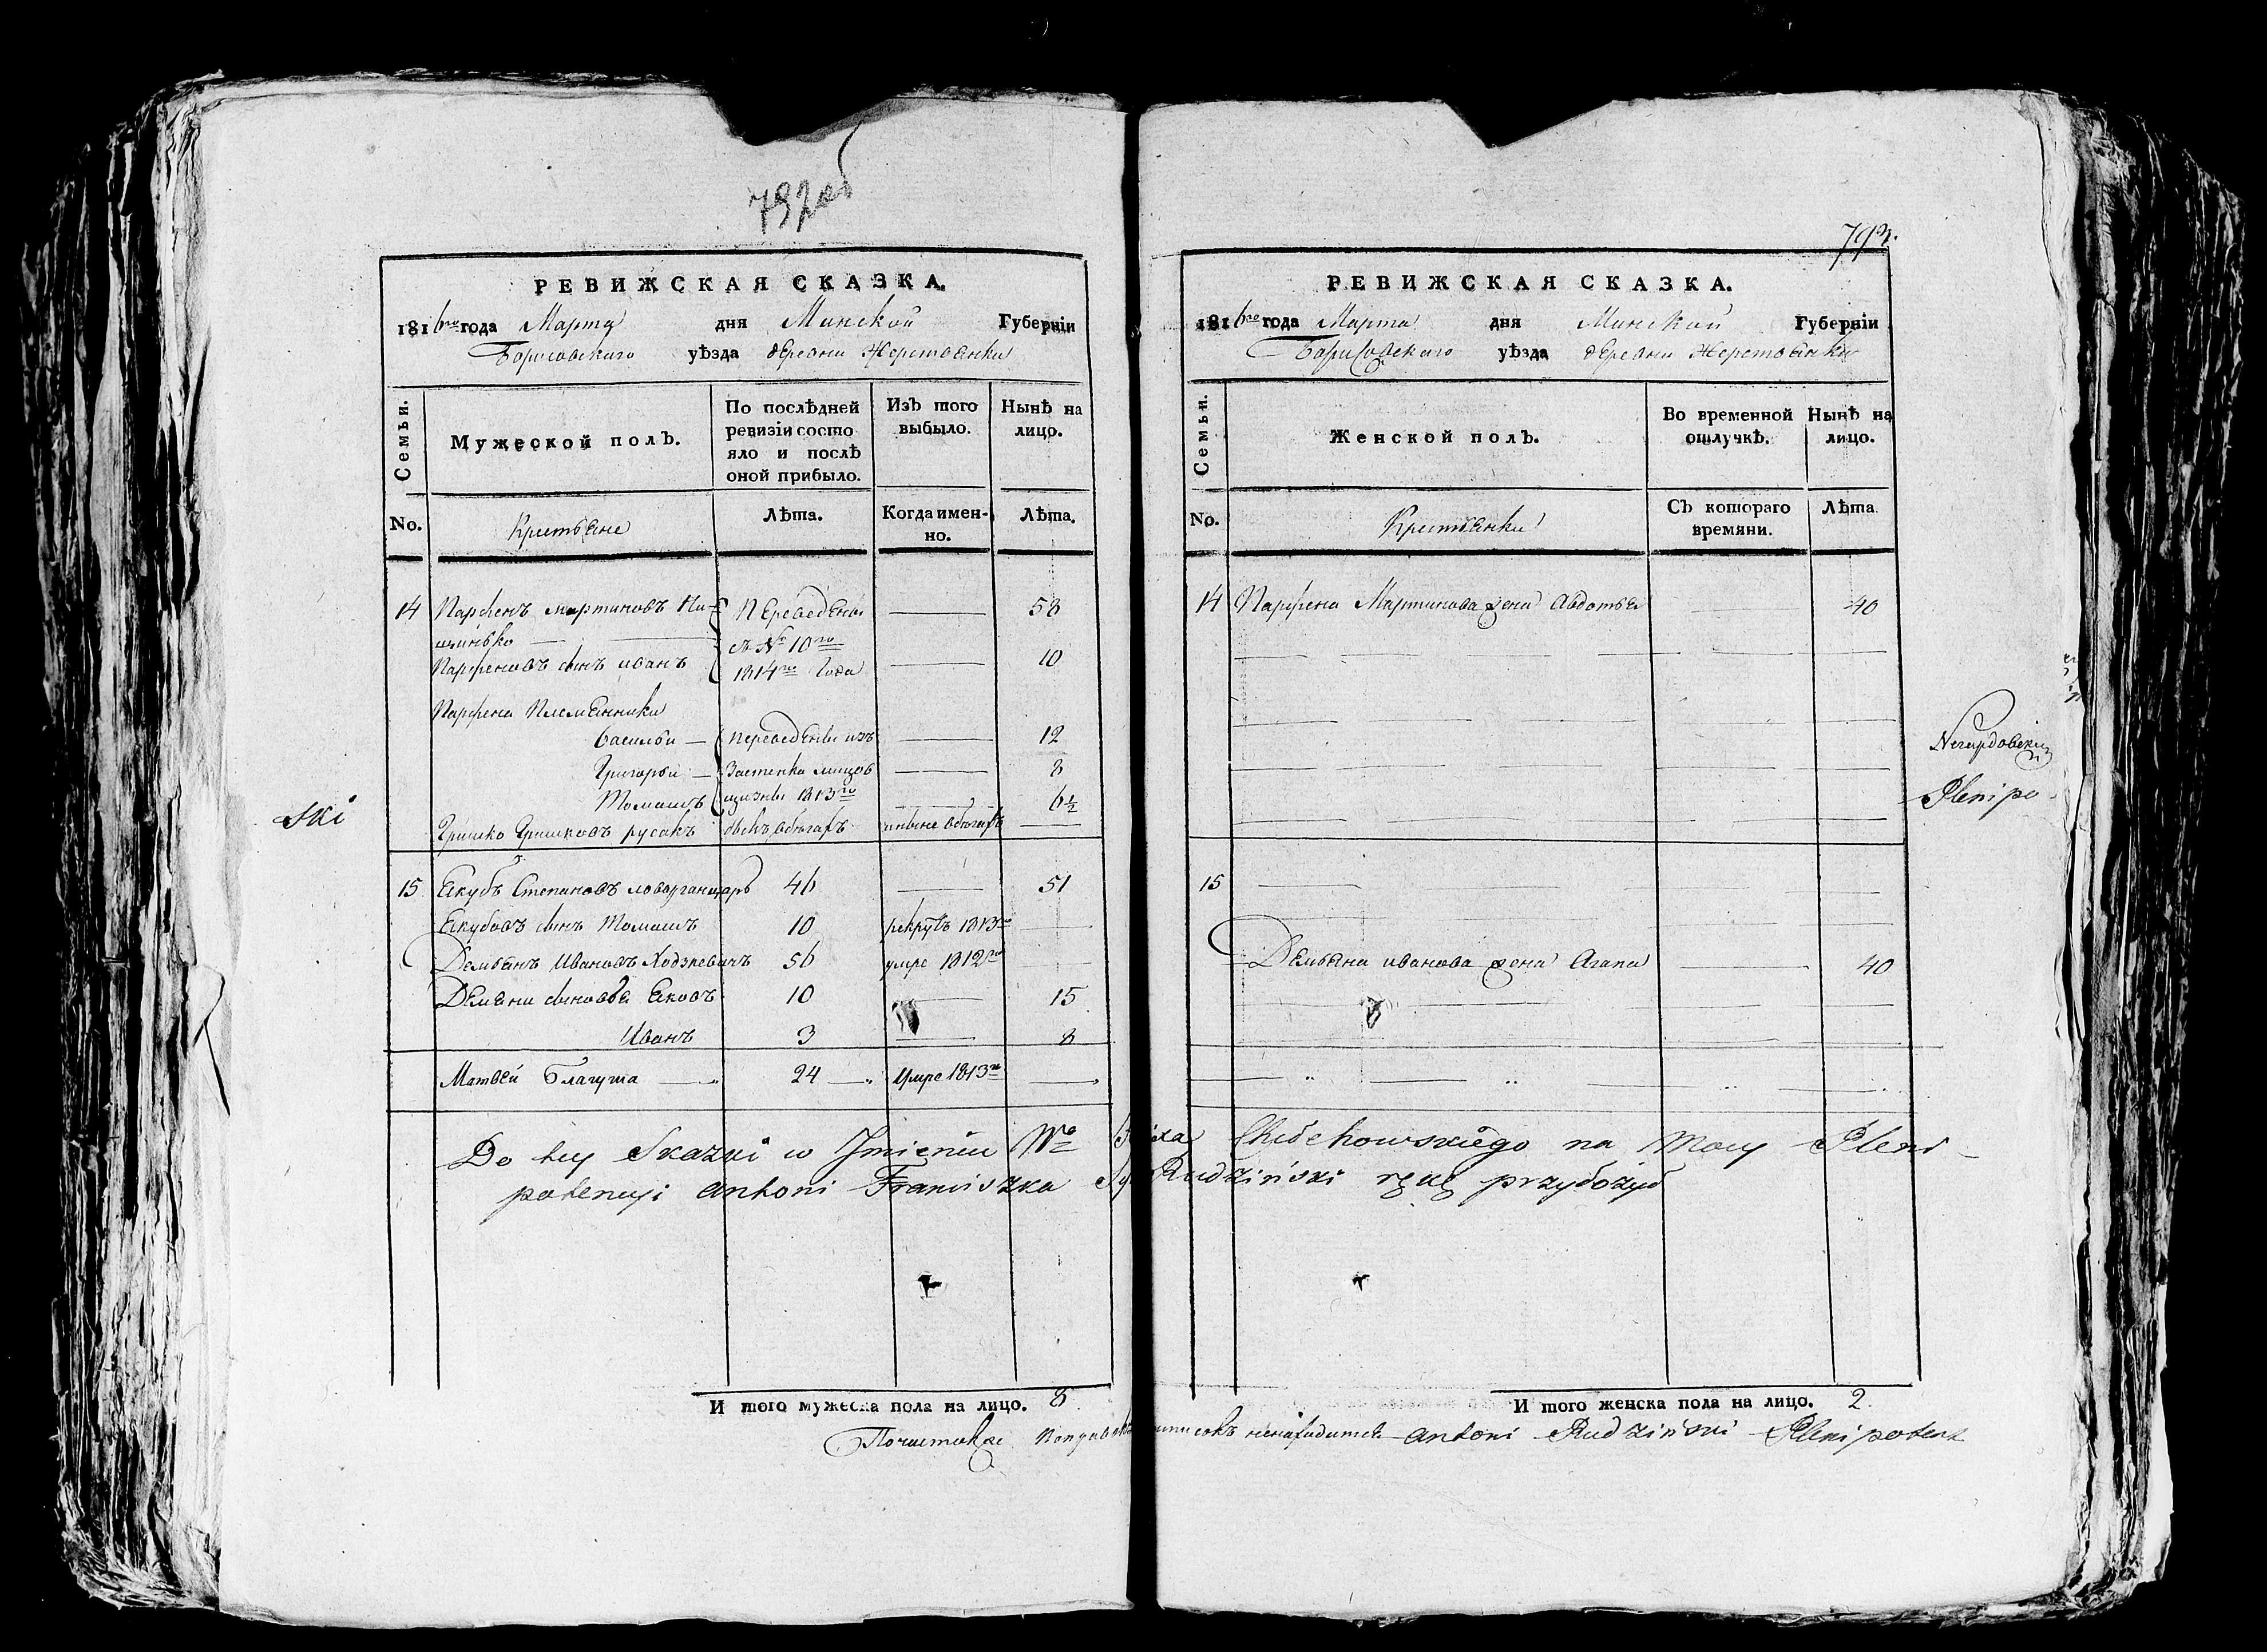 792об
РЕВИЖСКАЯ СКАЗКА.
1816го года Марта дня Минской Губернїи
Борисовского уѣзда деревни Жерствянки
Семьи.
Мужеской полъ.
По послѣдней ревизїи состояло и послѣ оной прибыло.
Изъ того выбыло.
Нынѣ на лицо.
No.
Крестьяне
Лѣта.
Когда именно.
Лѣта.
14 Парфенъ Мартиновъ Переведены 58
с № 10го
Парфеновъ сынъ иванъ 1814го Года 10
Парфена Племянники
Василей переведены изъ 12
Григорей Застенка 8
Томашъ 1813го 6½
Гришко Гришковъ русакъ
15 Якубъ Степановъ 46 51
Якубовъ сынъ Томашъ 10 рекрутъ 1813го
Демьянъ Ивановъ Ходзкевичъ 56 умре 1812го
Демяна сыновья Яковъ 10 15
Иванъ 3 8
Матвей Благуша 24 Умре 1813го
Do tey Skazki w Imieniu
potencyi Antoni Franciszka
И того мужеска пола на лицо. 8
ski
793.
РЕВИЖСКАЯ СКАЗКА.
1816го года Марта дня Минской Губернїи
Борисовского уѣзда деревни Жерствянки
Семьи.
Женской полъ.
Во временной отлучкѣ.
Нынѣ на лицо.
No.
Крестянки
Съ котораго времяни.
Лѣта
14 Парфена Мартинова жена Авдотья 40
15
Демьяна иванова жена Агапа 40
Chudchowskiego na Mocy Pleni-
Rudziński rękę przyłożył
И того женска пола на лицо. 2.
Antoni Rudziński Plenipotent
Plenipo-